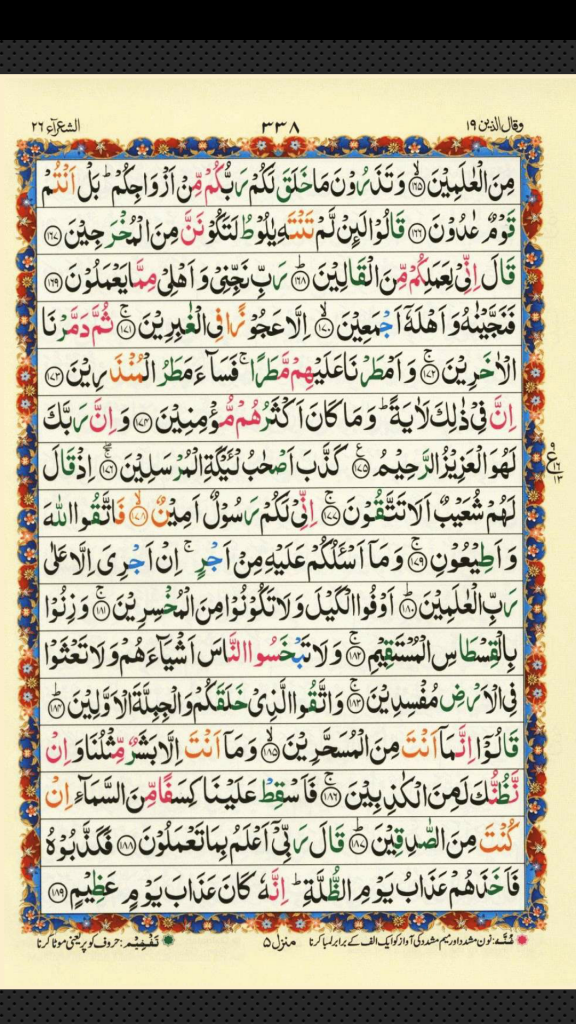 وقال الذين ١٩ ٣٣٨ الشعرآء ٢٦
مِنَ الْعٰلَمِيْنَ ۝١٦٥ وَ تَذَرُوْنَ مَا خَلَقَ لَكُمْ رَبُّكُمْ مِّنْ اَزْوَاجِكُمْ ؕ بَلْ اَنْتُمْ
قَوْمٌ عٰدُوْنَ ۝١٦٦ قَالُوْا لَىِٕنْ لَّمْ تَنْتَهِ يٰلُوْطُ لَتَكُوْنَنَّ مِنَ الْمُخْرَجِيْنَ ۝١٦٧
قَالَ اِنِّيْ لِعَمَلِكُمْ مِّنَ الْقَالِيْنَ ۝١٦٨ؕ رَبِّ نَجِّنِيْ وَ اَهْلِيْ مِمَّا يَعْمَلُوْنَ ۝١٦٩
فَنَجَّيْنٰهُ وَ اَهْلَهٗۤ اَجْمَعِيْنَ ۝١٧٠ۙ اِلَّا عَجُوْزًا فِي الْغٰبِرِيْنَ ۝١٧١ۚ ثُمَّ دَمَّرْنَا
الْاٰخَرِيْنَ ۝١٧٢ۚ وَ اَمْطَرْنَا عَلَيْهِمْ مَّطَرًا ۚ فَسَآءَ مَطَرُ الْمُنْذَرِيْنَ ۝١٧٣
اِنَّ فِيْ ذٰلِكَ لَاٰيَةً ؕ وَ مَا كَانَ اَكْثَرُهُمْ مُّؤْمِنِيْنَ ۝١٧٤ وَ اِنَّ رَبَّكَ
لَهُوَ الْعَزِيْزُ الرَّحِيْمُ ۝١٧٥ۧ كَذَّبَ اَصْحٰبُ لْـَٔيْكَةِ الْمُرْسَلِيْنَ ۝١٧٦ۚۖ اِذْ قَالَ
لَهُمْ شُعَيْبٌ اَلَا تَتَّقُوْنَ ۝١٧٧ۚ اِنِّيْ لَكُمْ رَسُوْلٌ اَمِيْنٌ ۝١٧٨ۙ فَاتَّقُوا اللّٰهَ
وَ اَطِيْعُوْنِ ۝١٧٩ۚ وَ مَاۤ اَسْـَٔلُكُمْ عَلَيْهِ مِنْ اَجْرٍ ۚ اِنْ اَجْرِيَ اِلَّا عَلٰى
رَبِّ الْعٰلَمِيْنَ ۝١٨٠ؕ اَوْفُوا الْكَيْلَ وَ لَا تَكُوْنُوْا مِنَ الْمُخْسِرِيْنَ ۝١٨١ۚ وَ زِنُوْا
بِالْقِسْطَاسِ الْمُسْتَقِيْمِ ۝١٨٢ۚ وَ لَا تَبْخَسُوا النَّاسَ اَشْيَآءَهُمْ وَ لَا تَعْثَوْا
فِي الْاَرْضِ مُفْسِدِيْنَ ۝١٨٣ۚ وَ اتَّقُوا الَّذِيْ خَلَقَكُمْ وَ الْجِبِلَّةَ الْاَوَّلِيْنَ ۝١٨٤ؕ
قَالُوْۤا اِنَّمَاۤ اَنْتَ مِنَ الْمُسَحَّرِيْنَ ۝١٨٥ۙ وَ مَاۤ اَنْتَ اِلَّا بَشَرٌ مِّثْلُنَا وَ اِنْ
نَّظُنُّكَ لَمِنَ الْكٰذِبِيْنَ ۝١٨٦ۚ فَاَسْقِطْ عَلَيْنَا كِسَفًا مِّنَ السَّمَآءِ اِنْ
كُنْتَ مِنَ الصّٰدِقِيْنَ ۝١٨٧ؕ قَالَ رَبِّيْۤ اَعْلَمُ بِمَا تَعْمَلُوْنَ ۝١٨٨ فَكَذَّبُوْهُ
فَاَخَذَهُمْ عَذَابُ يَوْمِ الظُّلَّةِ ؕ اِنَّهٗ كَانَ عَذَابَ يَوْمٍ عَظِيْمٍ ۝١٨٩
غُنَّه: نون مشدد اور میم مشدد کی آواز کو ایک الف کے برابر لمبا کرنا منزل ۵ تَفْخِیْم: حروف کو پُر یعنی موٹا کرنا